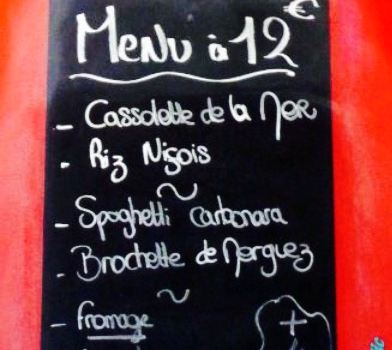 Menu à 12 €
- Cassolette de la Mer
- Riz Niçois
~
- Spaghetti carbonara
- Brochette de Merguez
~
- fromage
+